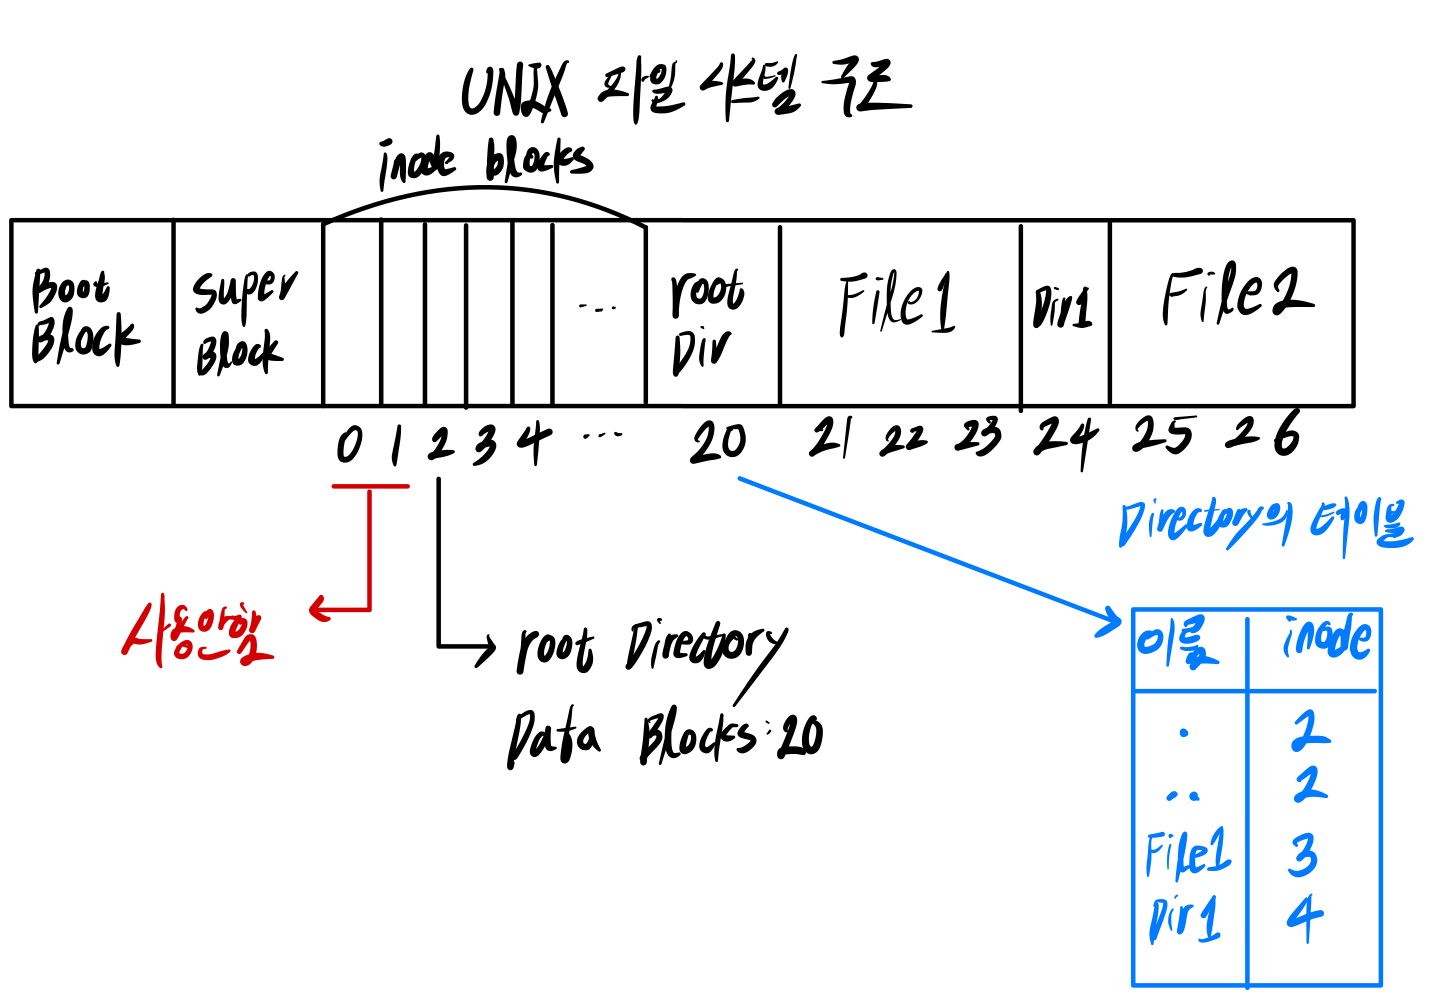 UNIX 파일 시스템 구조
inode blocks
Boot Block
Super Block
...
root Dir
File1
Dir1
File2
0 1 2 3 4 ... 20 21 22 23 24 25 26
사용안함
root Directory
Data Blocks : 20
Directory의 테이블
이름 inode
. 2
.. 2
File1 3
Dir1 4